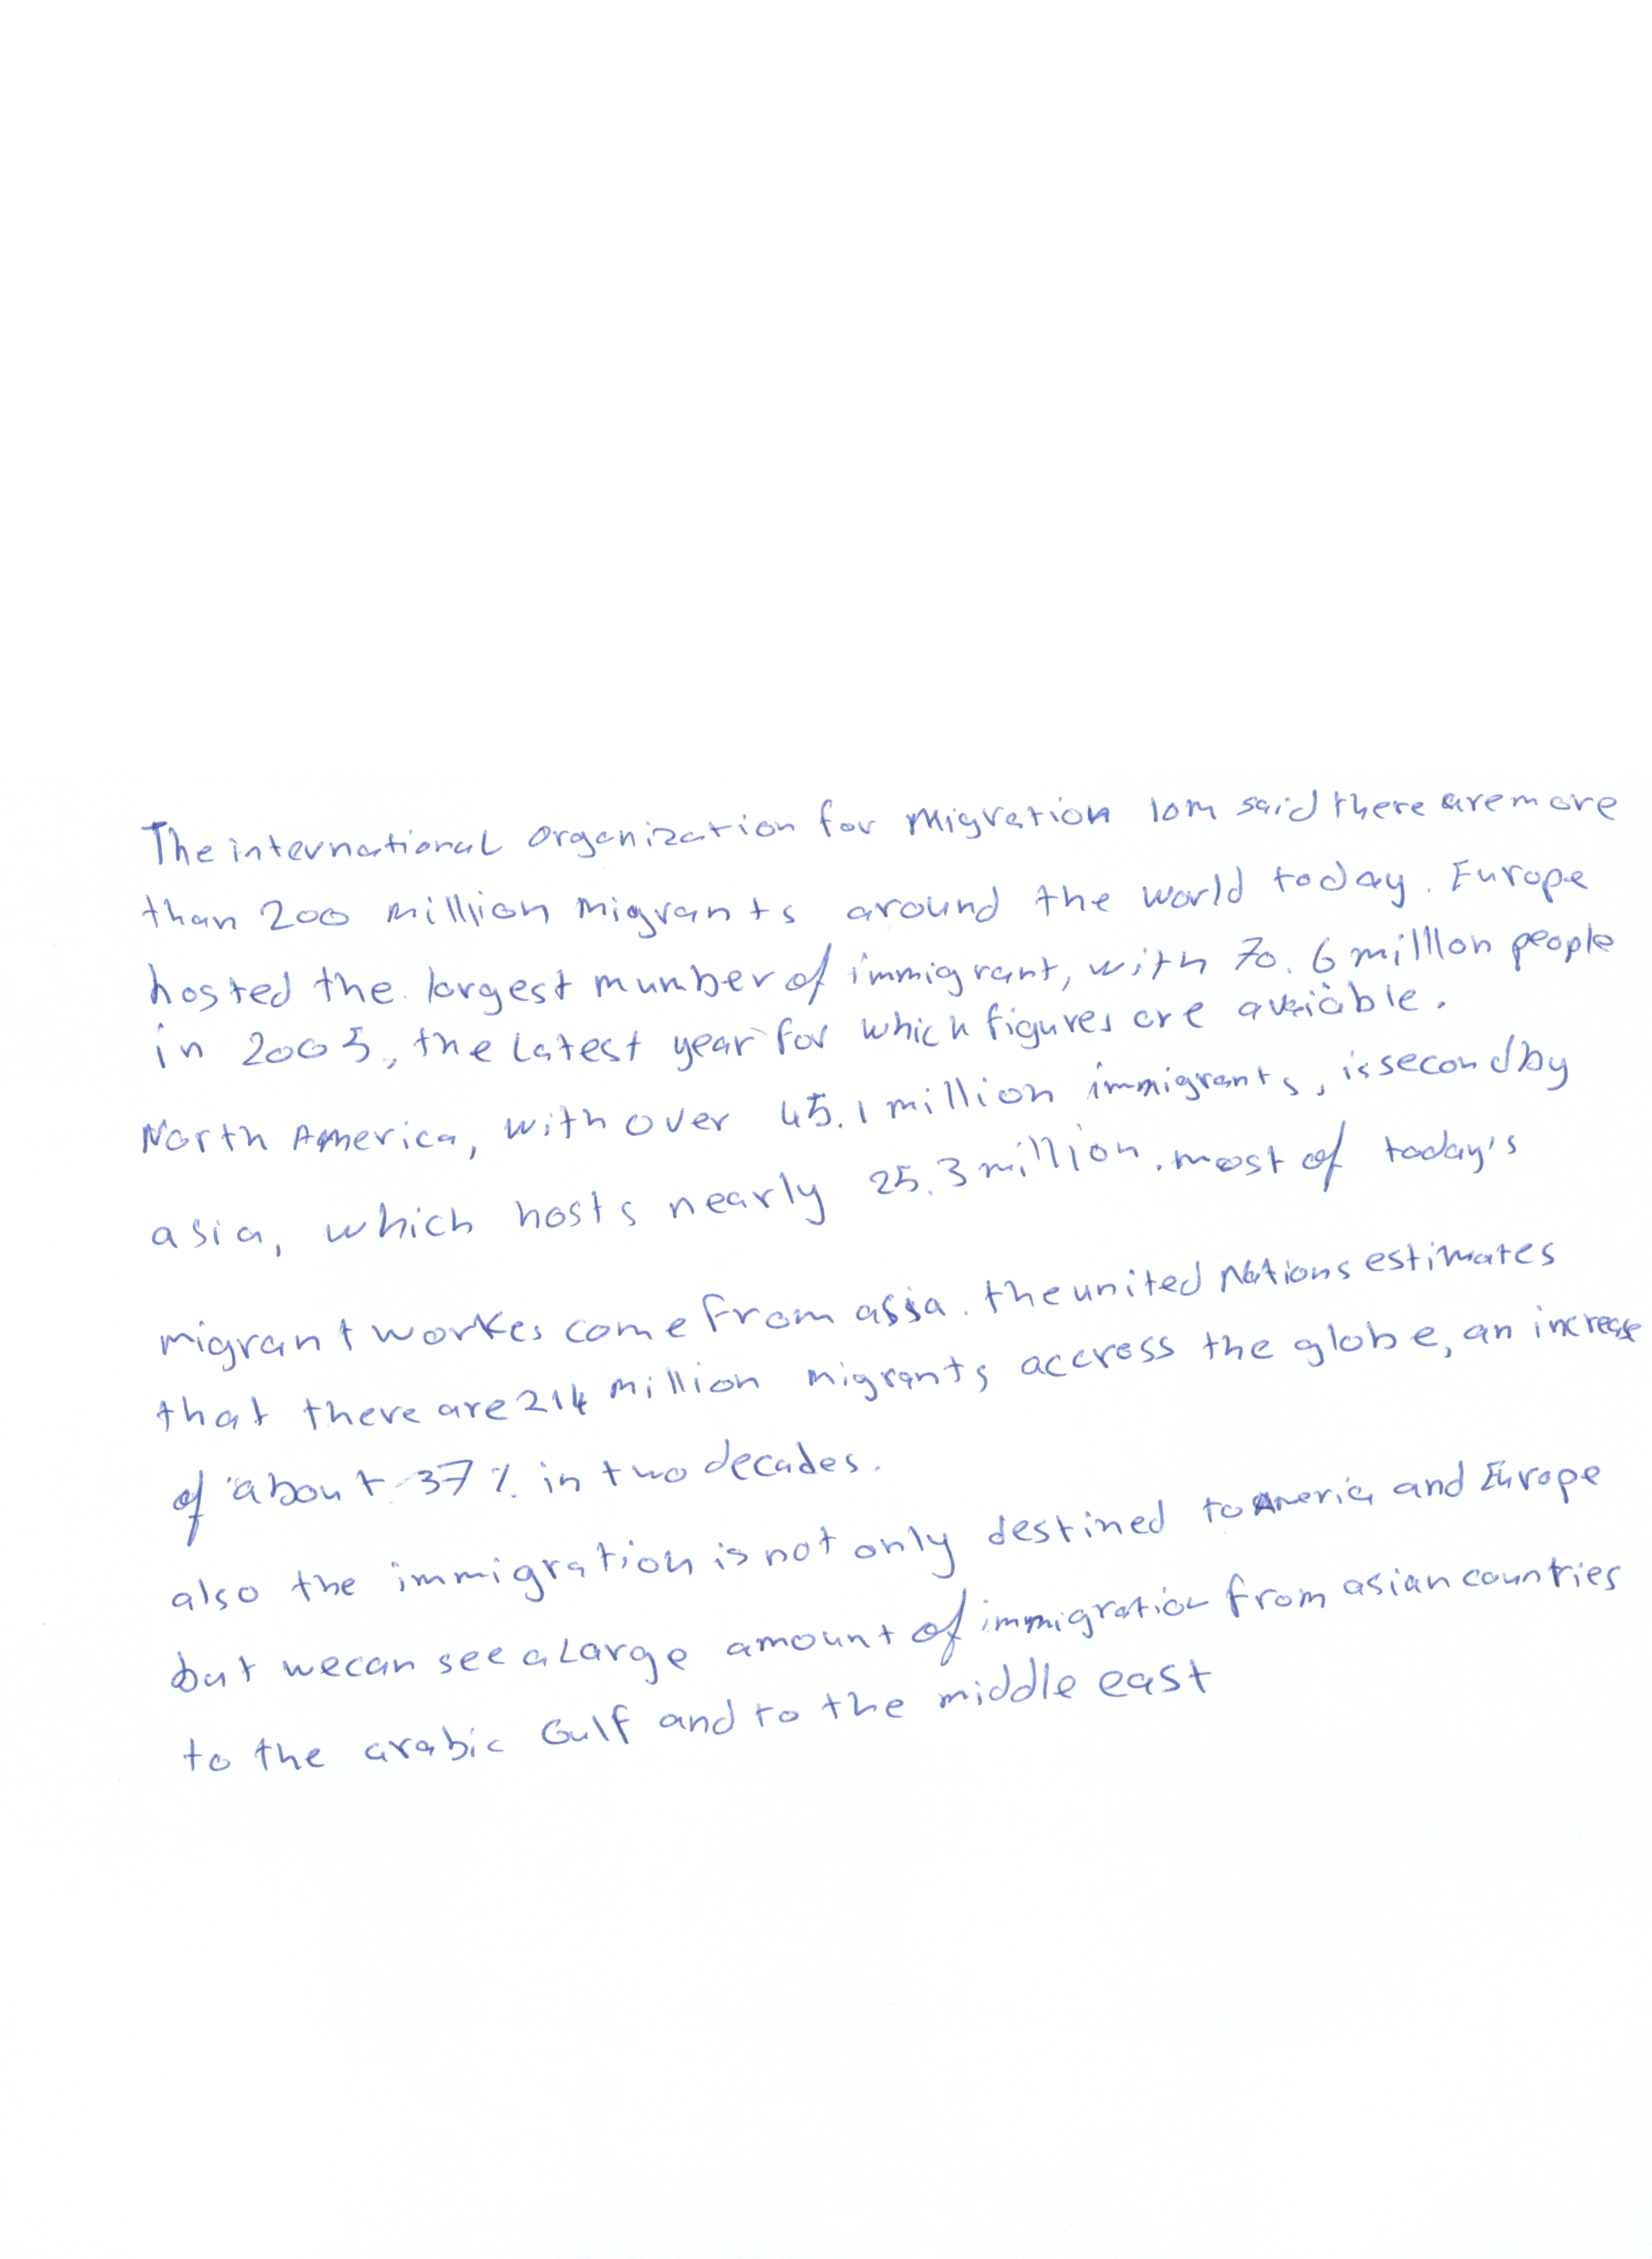 The international organization for Migration IOM said there are more
than 200 million migrants around the world today. Europe
hosted the largest mumber of immigrant, with 70.6 milllon people
in 2005, the latest year for which figures are avaiable.
North America, with over 45.1 million immigrants, is second by
asia, which hosts nearly 25.3 million. most of today's
migrant workes come from asia. the united Nations estimates
that there are 214 million migrants accross the globe, an increase
of about 37% in two decades.
also the immigration is not only destined to America and Europe
but we can see a large amount of immigration from asian countries
to the arabic Gulf and to the middle east